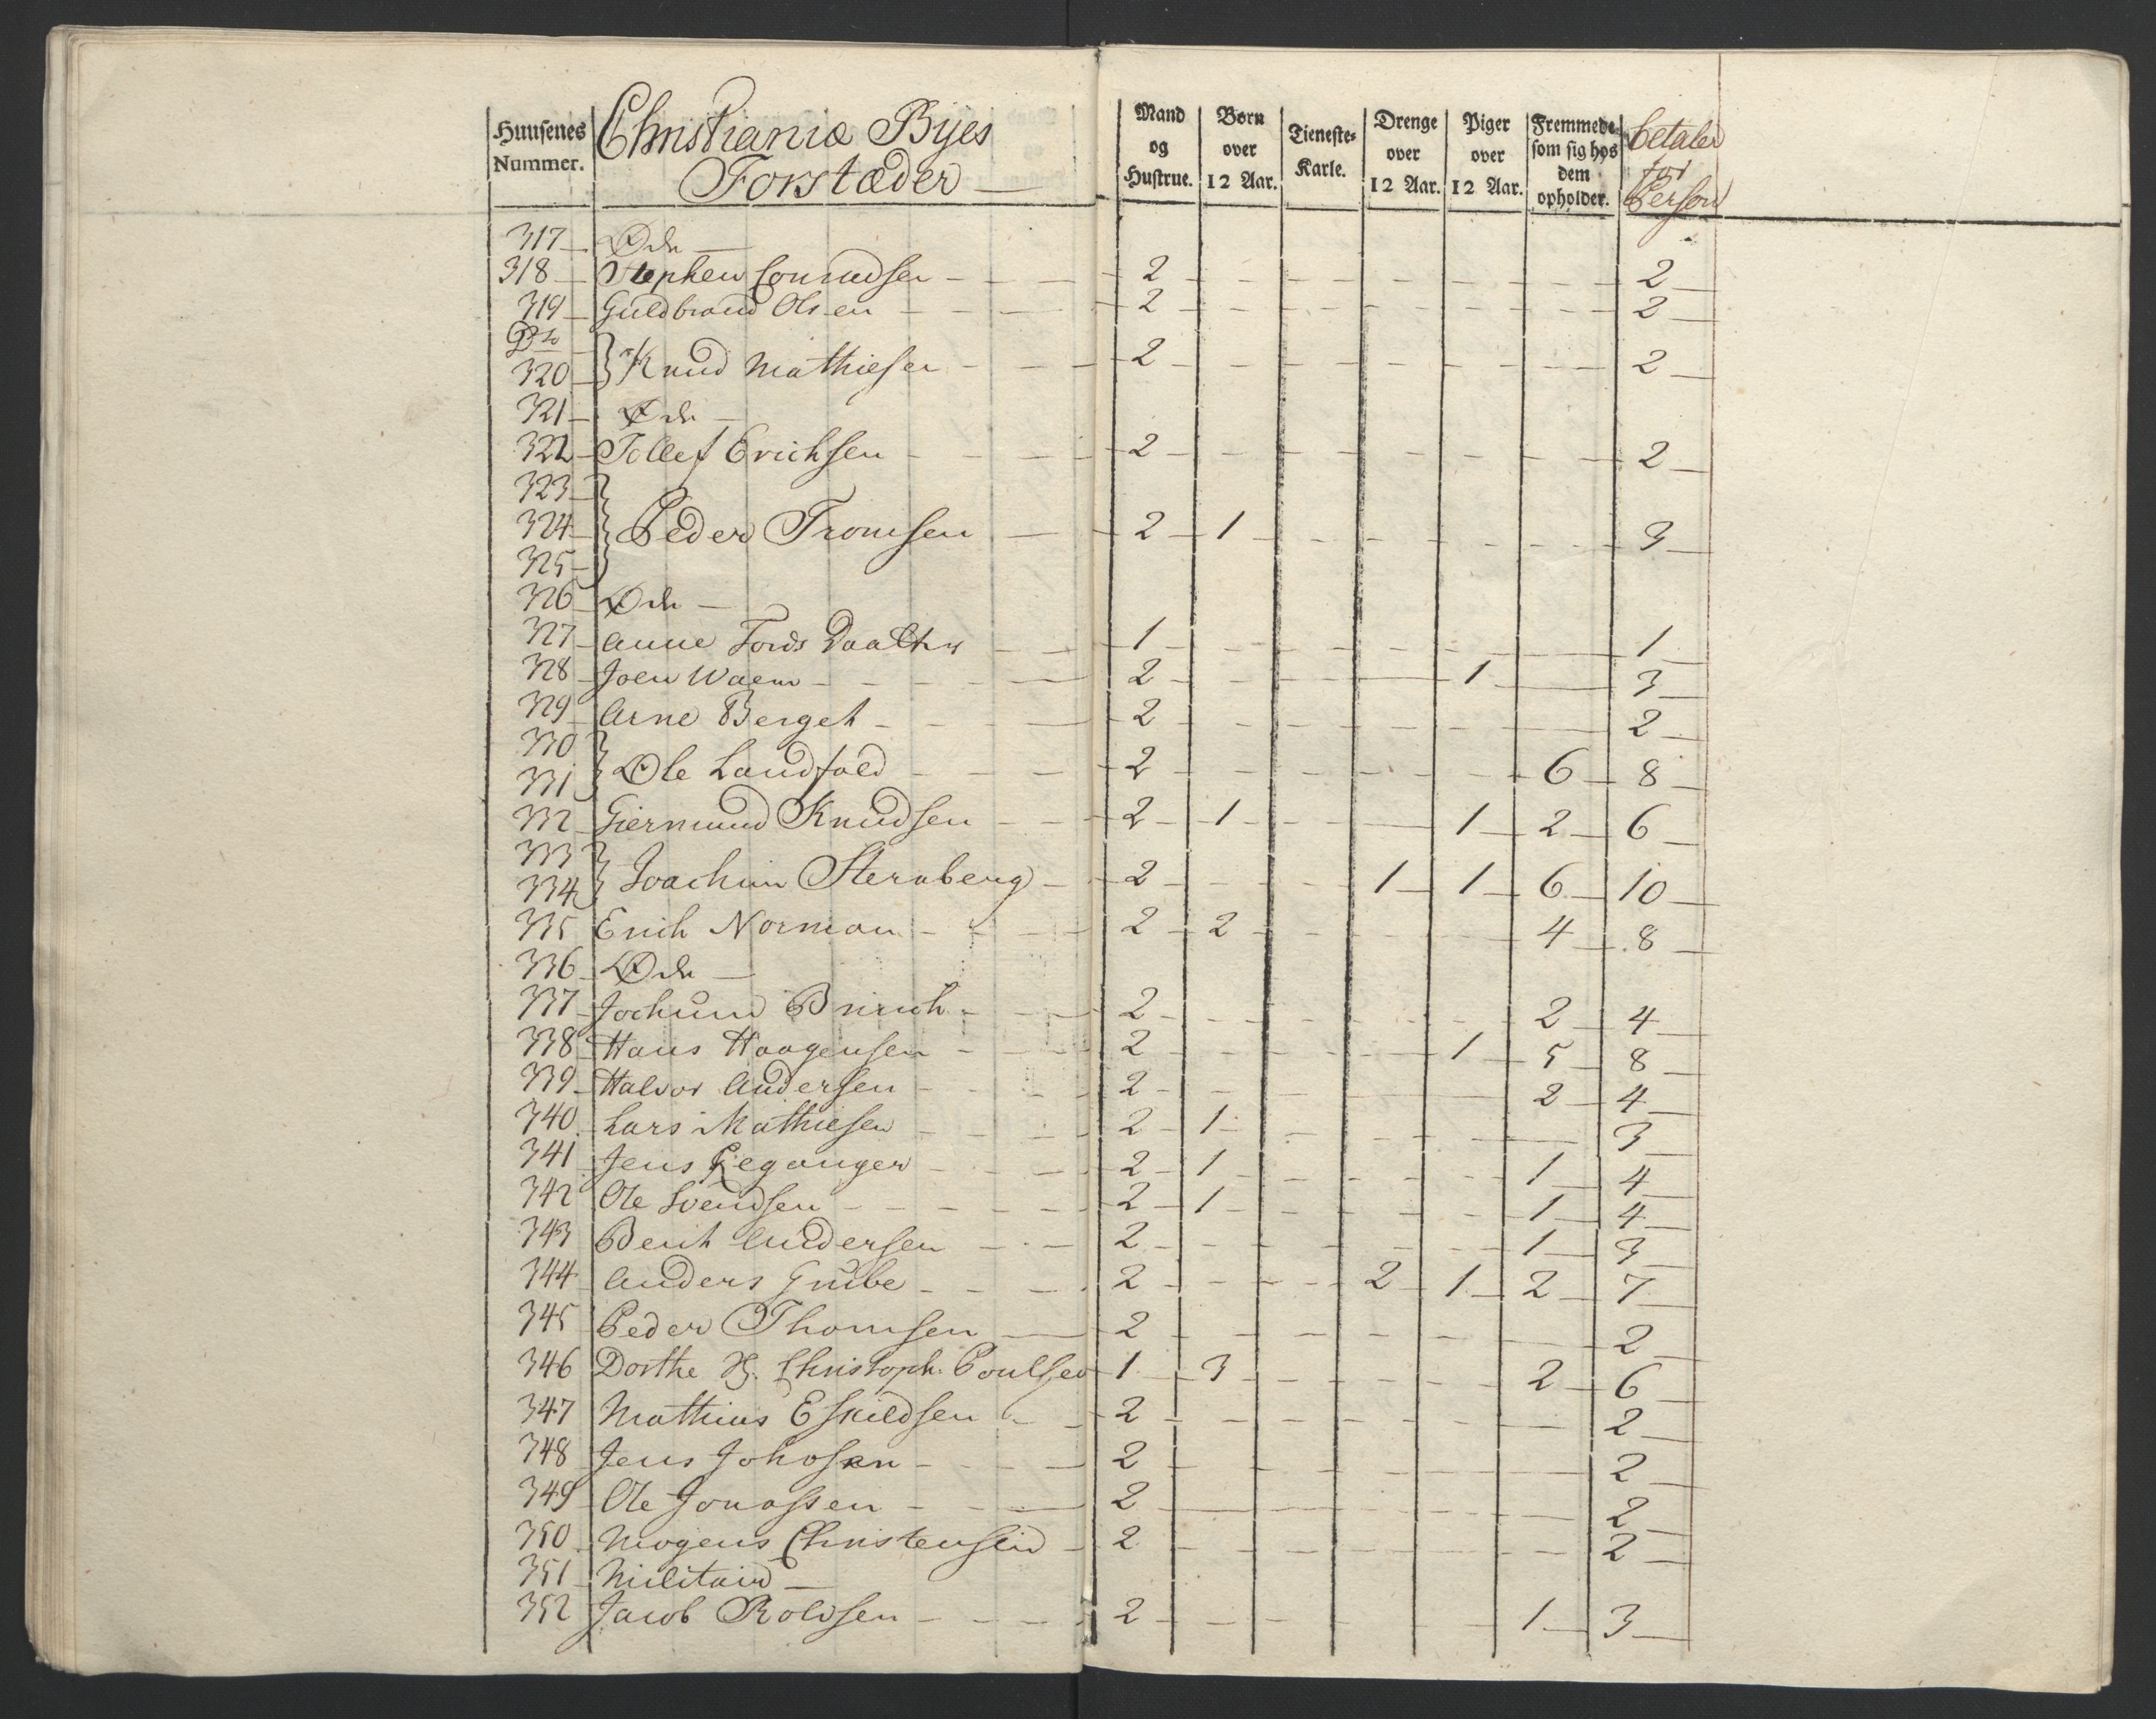 Huusenes Nummer. Christianiæ Byes Forstæder — Mand og Hustrue. Børn over 12 Aar. Tieneste-Karle. Drenge over 12 Aar. Piger over 12 Aar. Fremmede som sig hos dem opholder. betaler for Person
317 — Øde —
318 — Stephen Conradsen - - - 2 - - - - - - 2 —
319 — Guldbrand Olsen - - - 2 - - - - - - 2 —
Dto
320 } Knud Mathiesen - - - 2 - - - - - - 2 —
321 — Øde —
322 — Tollef Erichsen - - - 2 - - - - - - 2 —
323
324 } Peder Tromsen — 2 — 1 - - - - - 3 —
325
326 — Øde —
327 — Anne Tords Daatter - - 1 - - - - - - 1 —
328 — Joen Waem - - - 2 - - - - 1 — 3 —
329 — Arne Berget - - - 2 - - - - - - 2 —
330
331 } Ole Landfald - - - 2 - - - - - 6 — 8 —
332 — Giermund Knudsen - - 2 — 1 - - - 1 — 2 — 6 —
333
334 } Joachim Sternberg - 2 - - - 1 — 1 — 6 — 10 —
335 Erich Norman - - - 2 — 2 - - - - 4 — 8 —
336 — Øde —
337 — Jochum Brinch - - - 2 - - - - - 2 — 4 —
338 — Hans Haagensen - - - 2 - - - - 1 — 5 — 8 —
339 — Halvor Andersen - - - 2 - - - - - 2 — 4 —
340 — Lars Mathiesen - - - 2 — 1 - - - - - 3 —
341 Jens Leganger - - - 2 — 1 - - - - 1 — 4 —
342 Ole Svendsen - - - 2 — 1 - - - - 1 — 4 —
343 Berit Andersen - - - 2 - - - - - 1 — 3 —
344 Anders Grube - - - 2 - - - 2 — 1 — 2 — 7 —
345 Peder Thomsen — 2 - - - - - - 2 —
346 Dorthe Sl. Christoph. Poulsen 1 — 3 - - - - 2 — 6 —
347 Mathias Eskildsen - - 2 - - - - - - 2 —
348 Jens Johosen - - - 2 - - - - - - 2 —
349 Ole Jonassen - - - 2 - - - - - - 2 —
350 — Mogens Christensen - 2 - - - - - - 2 —
351 — Militair —
352 Jacob Rolvsen - - - 2 - - - - - 1 — 3 —